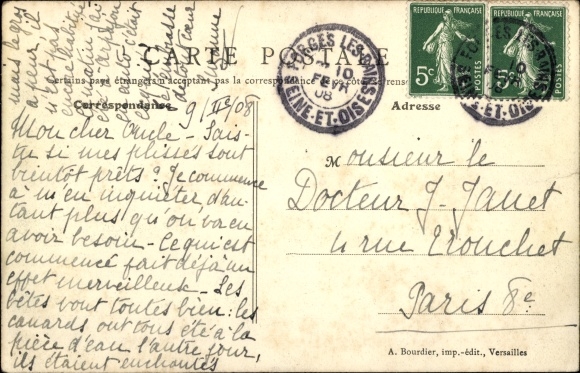 CARTE POSTALE
Certains pays étrangers n'acceptant pas la correspondance
Correspondance
Adresse
RÉPUBLIQUE FRANÇAISE
5c
POSTES
RÉPUBLIQUE FRANÇAISE
POSTES
FORGES LES BAINS
10
FEVR
08
SEINE-ET-OISE
9/II/08
Mon cher Oncle - Sais-
tu si mes plissés sont
bientôt prêts? Je commence
à m'en inquiéter d'au-
tant plus qu'on va en
avoir besoin - Ce qui est
commencé fait déjà un
effet merveilleux - Les
bêtes vont toutes bien: les
canards ont tous été à la
pièce d'eau l'autre jour,
ils étaient enchantés
Monsieur le
Docteur J. Janet
4 rue Tronchet
Paris 8e
A. Bourdier, imp.-édit., Versailles